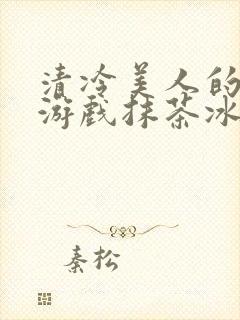 清冷美人的
游戏抹茶冰
秦松